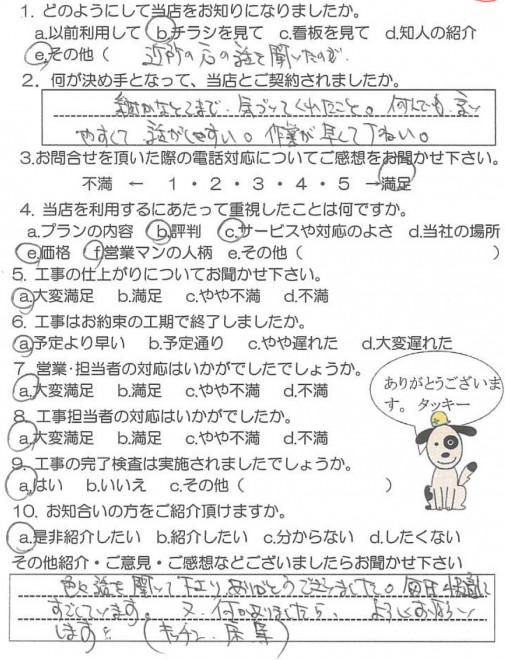 1. どのようにして当店をお知りになりましたか。
a.以前利用して b.チラシを見て c.看板を見て d.知人の紹介
e.その他 ( 近所の方の話を聞いたので.
2. 何が決め手となって、当店とご契約されましたか。
細かなとこまで、気づいてくれたこと。何んでも言い
やすくて 話がしやすい。作業が早くて
3.お問合せを頂いた際の電話対応についてご感想をお聞かせ下さい。
不満 ← 1・2・3・4・5 →満足
4. 当店を利用するにあたって重視したことは何ですか。
a.プランの内容 b.評判 c.サービスや対応のよさ d.当社の場所
e.価格 f.営業マンの人柄 e.その他 ( )
5. 工事の仕上がりについてお聞かせ下さい。
a.大変満足 b.満足 c.やや不満 d.不満
6. 工事はお約束の工期で終了しましたか。
a.予定より早い b.予定通り c.やや遅れた d.大変遅れた
7. 営業・担当者の対応はいかがでしたでしょうか。
a.大変満足 b.満足 c.やや不満 d.不満
ありがとうございま
す。 タッキー
8. 工事担当者の対応はいかがでしたか。
a.大変満足 b.満足 c.やや不満 d.不満
9. 工事の完了検査は実施されましたでしょうか。
a.はい b.いいえ c.その他 ( )
10. お知合いの方をご紹介頂けますか。
a.是非紹介したい b.紹介したい c.分からない d.したくない
その他紹介・ご意見・ご感想などございましたらお聞かせ下さい
色々話を聞いて下さりありがとうございました。毎日快適に
すごしています。又、何かありましたら、よろしくお願い
します (キッチン・床等)